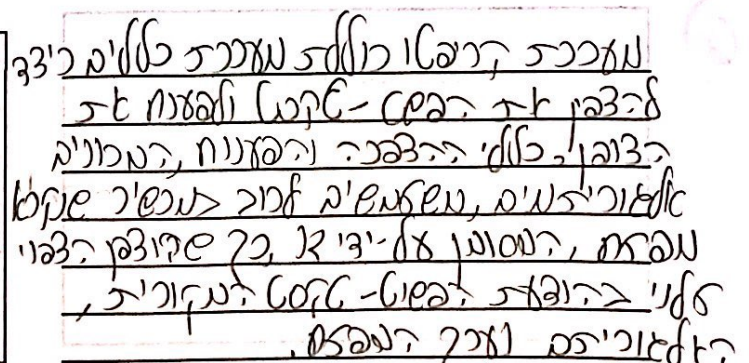 מערכת קריפטו כוללת מערכת כללים כיצד
להצפין את הפשט-טקסט ולפענח את
הצופן. כללי ההצפנה והפענוח, המכונים
אלגוריתמים, משתמשים לרוב במכשיר שנקרא
מפתח, המסומן על-ידי k, כך שהוצפן הצפני
תלוי בהודעת הפשוט-טקסט המקורית,
האלגוריתם וערך המפתח.